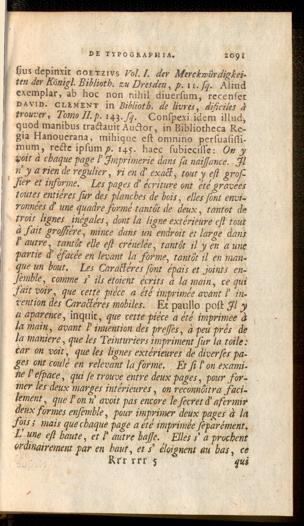 DE TYPOGRAPHIA. 2091
sius depinxit GOETZIVS Vol. I. der Merckwürdigkei-
ten der Königl. Biblioth. zu Dresden, p. 11. sq. Aliud
exemplar, ab hoc non nihil diuersum, recenset
DAVID. CLEMENT in Biblioth. de livres, dificiles à
trouver, Tomo II. p. 143. sq. Conspexi idem illud,
quod manibus tractauit Auctor, in Bibliotheca Re-
gia Hanouerana, mihique est omnino persuasissi-
mum, recte ipsum p. 145. haec subiecisse: On y
voit à chaque page l'Imprimerie dans sa naissance. Il
n'y a rien de regulier, ri en d'exact, tout y est gros-
sier et informe. Les pages d'écriture ont été gravées
toutes entiéres sur des planches de bois, elles sont envi-
ronnées d'une quadre formé tantôt de deux, tantot de
trois lignes inégales, dont la ligne extérieure est tout
à fait grossière, mince dans un endroit et large dans
l'autre, tantôt elle est crénelée, tantôt il y en a une
partie d'éfacée en levant la forme, tantôt il en man-
que un bout. Les Caractères sont épais et joints en-
semble, comme s'ils etoient écrits a la main, ce qui
fait voir, que cette piéce a été imprimée avant l'in-
vention des Caractéres mobiles. Et paullo post Il y
a aparence, inquit, que cette piéce a été imprimée à
la main, avant l'inuention des presses, à peu prés de
la maniere, que les Teinturiers impriment sur la toile:
car on voit, que les lignes extérieures de diverses pa-
ges ont coulé en relevant la forme. Et si l'on exami-
ne l'espace, qui se trouve entre deux pages, pour for-
mer les deux marges intérieures, on reconnoitra faci-
lement, que l'on n'avoit pas encore le secret d'afermir
deux formes ensemble, pour imprimer deux pages à la
fois; mais que chaque page a été imprimée séparément.
L'une est haute, et l'autre basse. Elles s'a prochent
ordinairement par en haut, et s'éloignent au bas, ce
Rrr rrr 5 qui